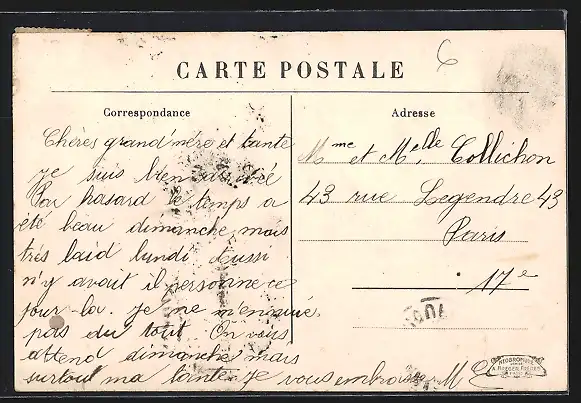 CARTE POSTALE
Correspondance
Adresse
Chères grand'mère et tante
je suis bien arrivée
Par hasard le temps a
été beau dimanche, mais
très laid lundi Aussi
n'y avait il personne ce
jour-là. Je ne m'ennuie
pas du tout On vous
attend dimanche mais
surtout ma tante. Je vous embrasse M
Mme et Melle Collichon
43 rue Legendre 43
Paris
17e